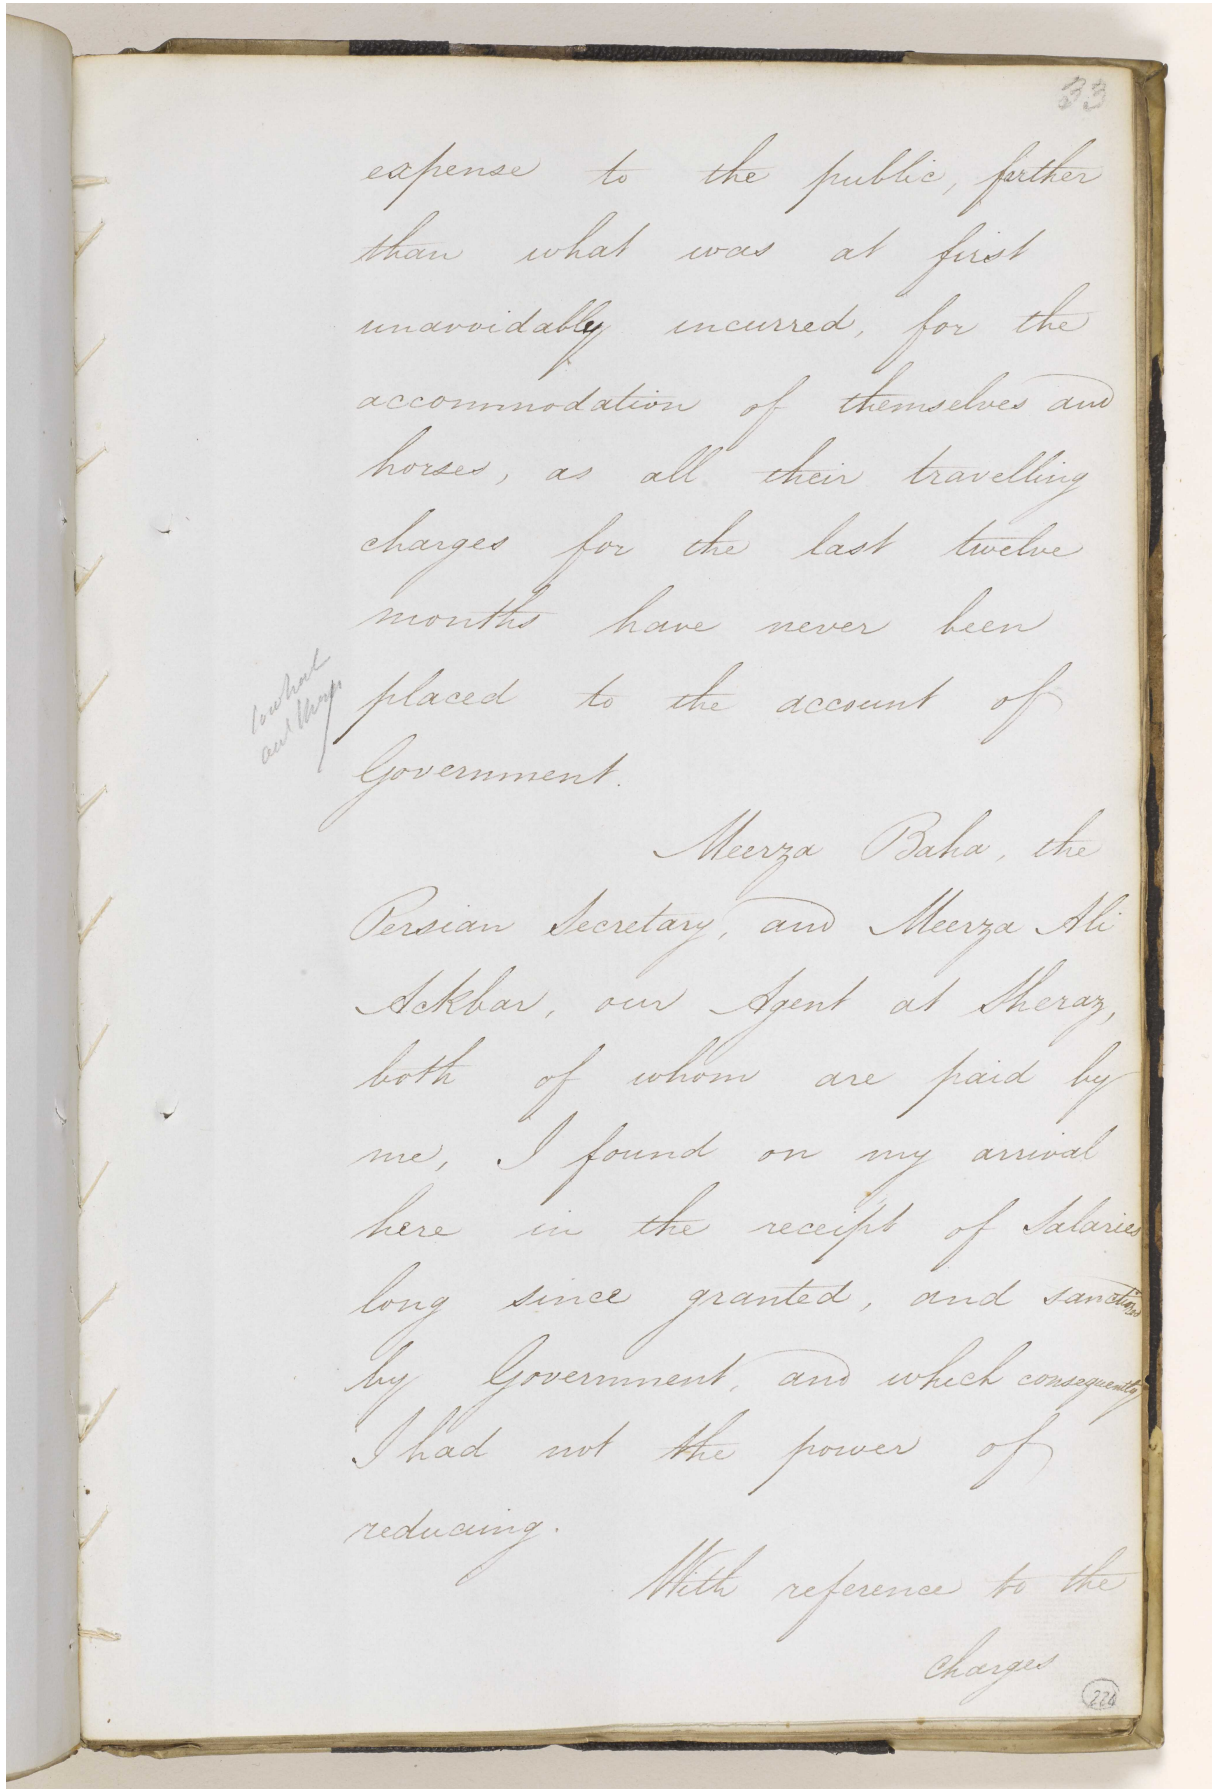 33
expense to the public, further
than what was at first
unavoidably incurred, for the
accommodation of themselves and
horses, as all their travelling
charges for the last twelve
months have never been
placed to the account of
Government.
what
are they
Meerza Baha, the
Persian Secretary, and Meerza Ali
Ackbar, our Agent at Sheraz,
both of whom are paid by
me, I found on my arrival
here in the receipt of Salaries
long since granted, and sanctioned
by Government, and which consequently
I had not the power of
reducing.
With reference to the
charges
224